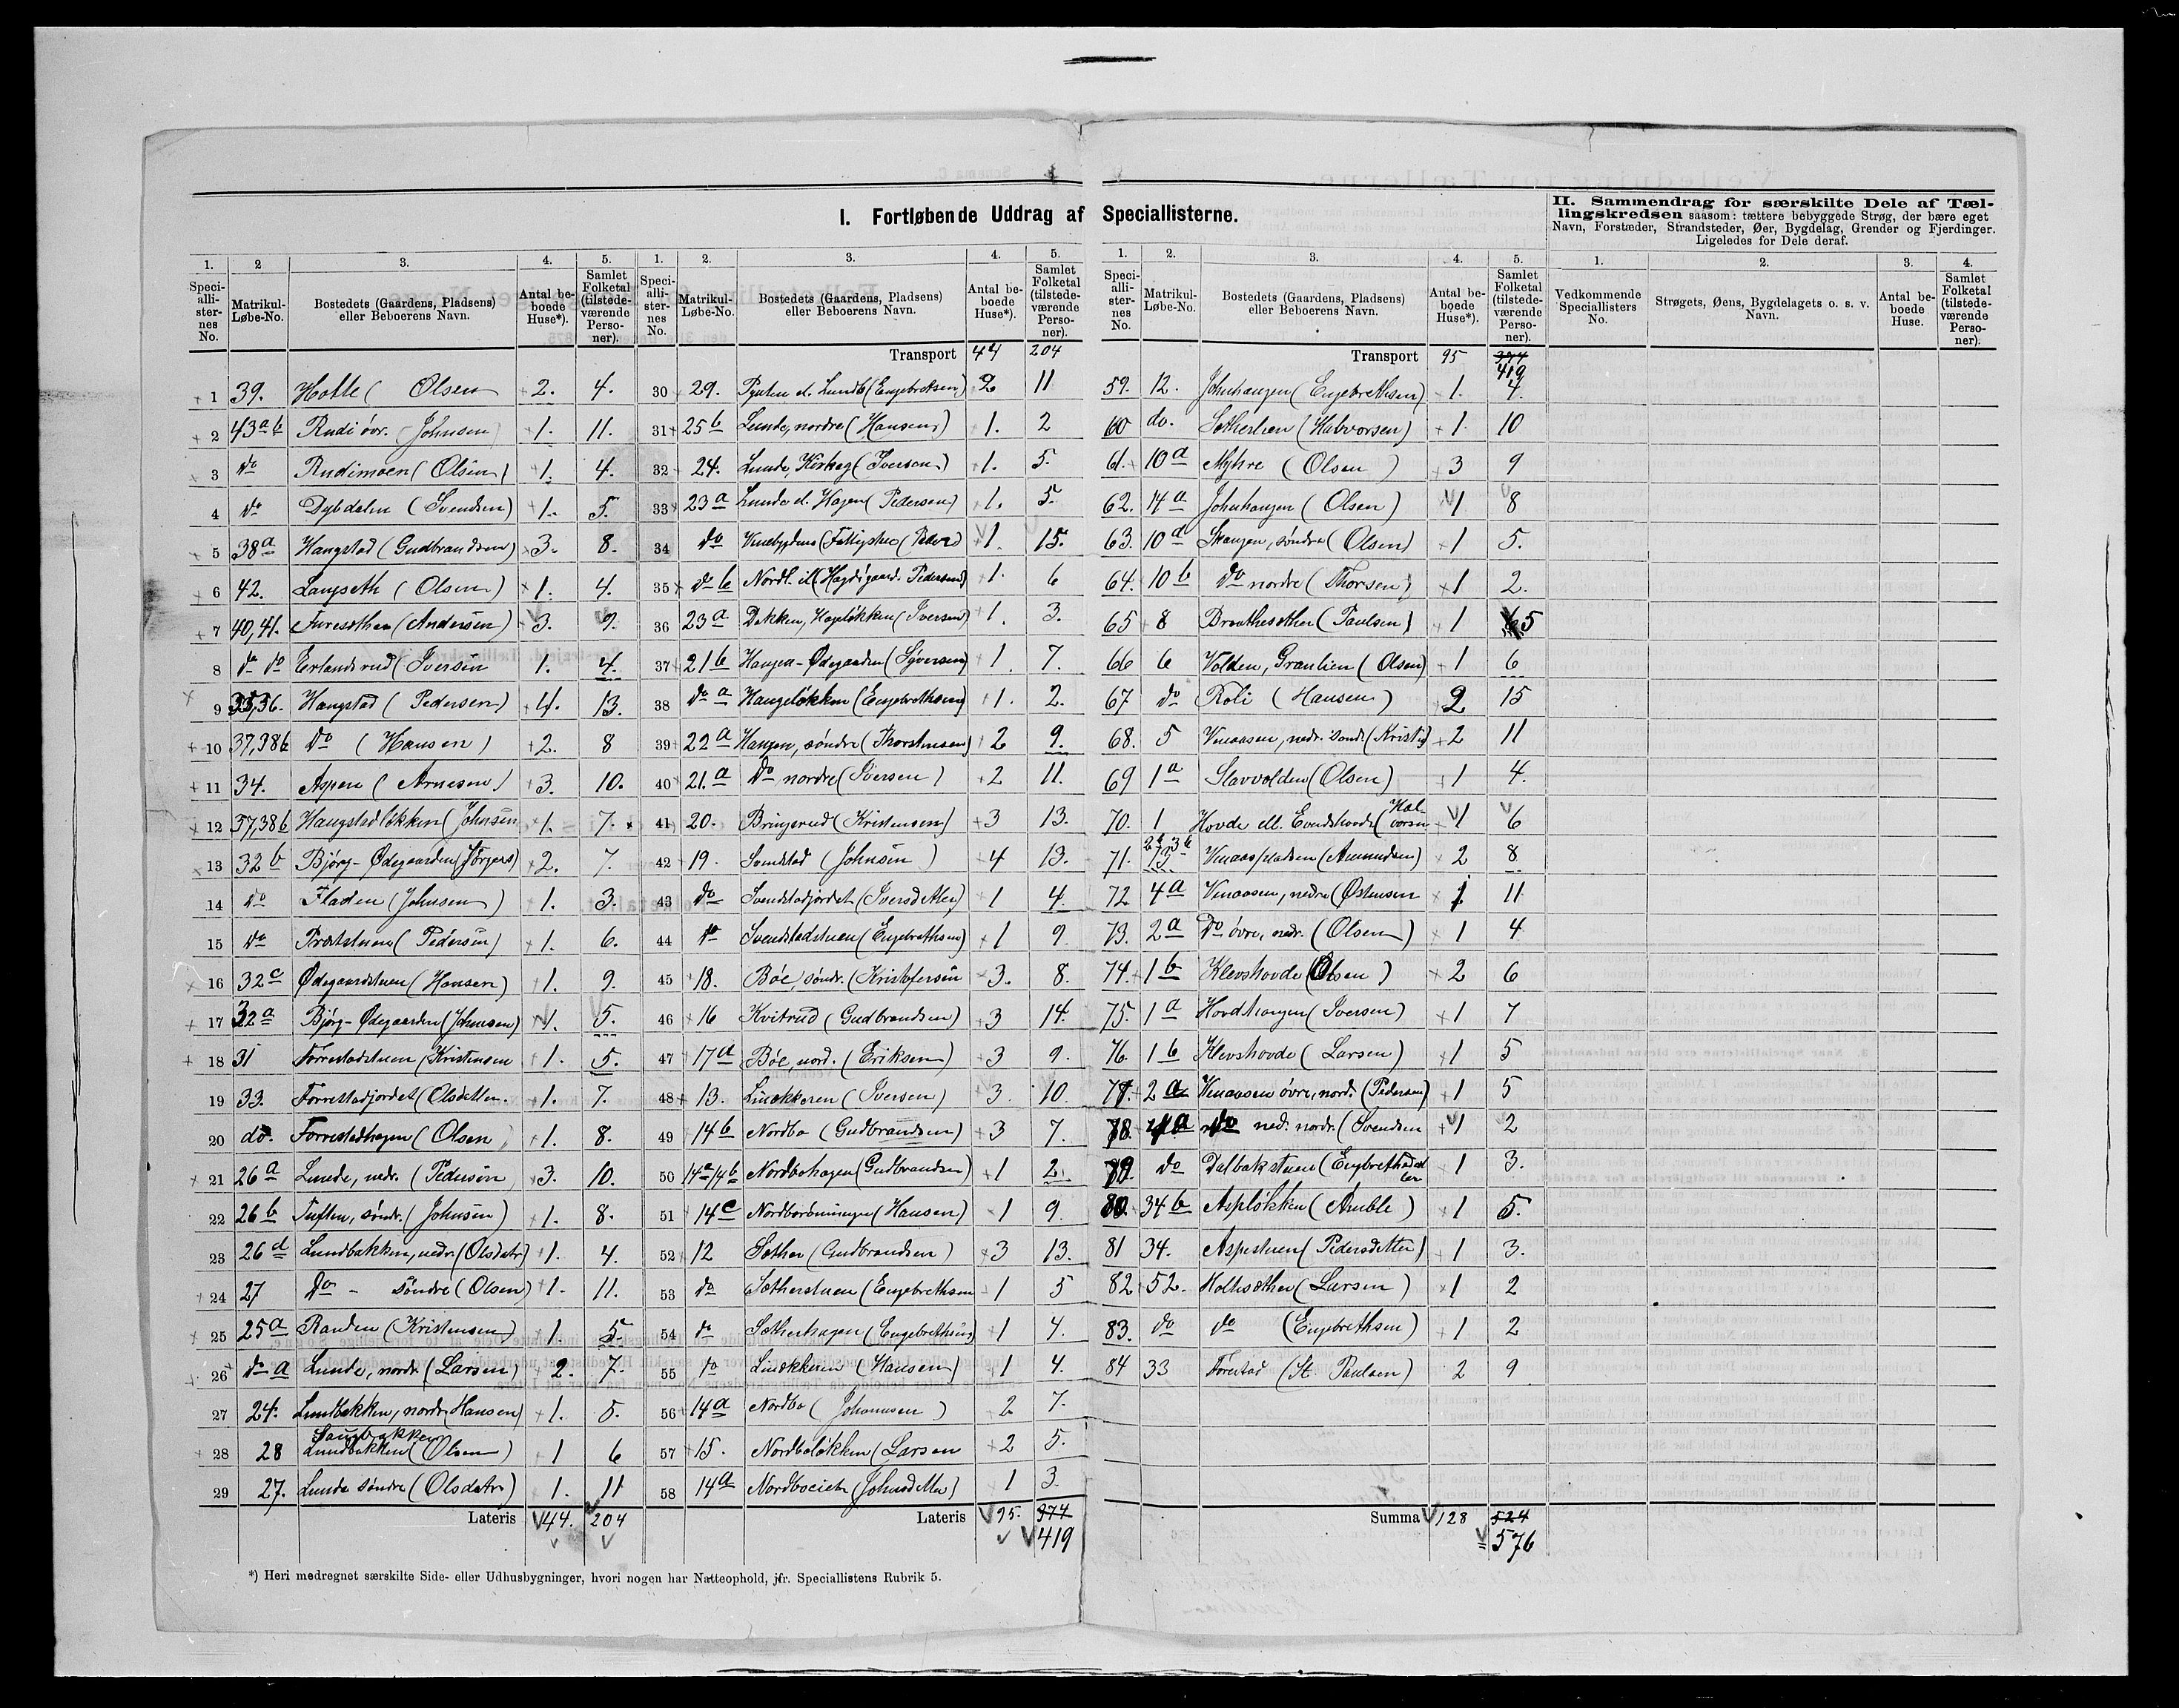 I. Fortløbende Uddrag af Speciallisterne.
II. Sammendrag for særskilte Dele af Tællingskredsen saasom: tættere bebyggede Strøg, der bære eget
Navn, Forstæder, Strandsteder, Øer, Bygdelag, Grender og Fjerdinger.
Ligeledes for Dele deraf.
1. Speciallisternes No. 2 Matrikul-Løbe-No. 3. Bostedets (Gaardens, Pladsens) eller Beboerens Navn. 4. Antal beboede Huse*). 5. Samlet Folketal (tilstedeværende Personer).
1 39. Holte ( Olsen 2. 4.
2 43 a b Rudi övr. (Johnsen) 1. 11.
3 do Rudimoen (Olsen) 1. 4.
4 do Dybdalen (Svendsen) 1. 5.
5 38 a Haugstad (Gudbrandsen) 3. 8.
6 42. Langseth (Olsen) 1. 4.
7 40,41. Furesothen (Andersen) 3. 9.
8 do do Erlandsrud (Iversen 1. 4.
9 35,36. Haugstad (Pedersen) 4. 13.
10 37,38b do (Hansen) 2. 8
11 34. Aspen (Arnesen) 3. 10.
12 37,38b Haugstadløkken (Johnsen 1. 7.
13 32 b Bjørg-Ødegaarden (Jørgens) 2. 7.
14 do Fladen (Johnsen) 1. 3.
15 do (Pedersen) 1. 6.
16 32 c Ødegaardstuen (Hansen) 1. 9.
17 32 a Bjørg-Ødegaarden (Johnsen) 1. 5.
18 31 Forrestadstuen (Kristensen 1. 5.
19 33. Forrestadjordet (Olsdatter. 1. 7.
20 do. Forrestadhagen (Olsen) 1. 8.
21 26 a Lunde, nedr. (Pedersen 3. 10.
22 26 b Tuften, søndr. (Johnsen) 1. 8.
23 26 d Lundbakken, nedr. (Olsdatr) 1. 4.
24 27 do - søndre (Olsen) 1. 11.
25 25 a Randen (Kristensen) 1. 5.
26 do a Lunde, nordr. (Larsen) 2. 7.
27 24. Lundbakken, nordr. Hansen) 1. 5.
Saugbakken
28 28 Lundbakken (Olsen) 1 6
29 27. Lunde søndre (Olsdatr) 1. 11
Lateris 44. 204
1. Speciallisternes No. 2. Matrikul-Løbe-No. 3. Bostedets (Gaardens, Pladsens) eller Beboerens Navn. 4. Antal beboede Huse*). 5. Samlet Folketal (tilstedeværende Personer).
Transport 44 204
30 29. el. Lundb (Engebretsen) 2 11
31 25 b Lunde, nordre (Hansen) 1. 2
32 24. Lunde, (Iversen) 1. 5.
33 23 a Lunde el. Hagen (Pedersen) 1. 5.
34 do 1. 15.
35 do b (Pedersen) 1. 6
36 23 a Hageløkken (Iversen) 1. 3.
37 21 b Haugen-Ødegaarden (Syversen) 1 7.
38 do a Haugeløkken (Engebrethsen) 1. 2.
39 22 a Haugen, søndre (Thorstensen) 2 9.
40 21. a do nordre (Iversen) 2 11.
41 20. Bringerud (Kristensen) 3 13.
42 19. Svendstad (Johnsen) 4 13.
43 do Svendstadjordet (Iversdatter) 1 4.
44 do Svendstadstuen (Engebrethsen) 1 9
45 18. Böe, søndr. (Kristofersen 3. 8.
46 16 Kvitrud (Gudbrandsen) 3 14.
47 17 a Böe, nord. (Eriksen) 3 9.
48 13. Linøkkeren (Iversen) 3 10.
49 14 b Nordbo (Gudbrandsen) 3 7.
50 14a/14b Nordbohagen (Gudbrandsen) 1 2.
51 14 c (Hansen) 1 9.
52 12 Sother (Gudbrandsen) 3 13.
53 do Sotherstuen (Engebrethsen 1 5
54 do Sotherhagen (Engebrethsen) 1 4.
55 do Linøkkeren (Hansen) 1 4.
56 14 a Nordbo (Johannesen) 2 7.
57 15. Nordboløkken (Larsen 2 5.
58 14 a Nordboeiet (Johnsdatter) 1 3.
Lateris 95. 374
419
1. Speciallisternes No. 2. Matrikul-Løbe-No. 3. Bostedets (Gaardens, Pladsens) eller Beboerens Navn. 4. Antal beboede Huse*). 5. Samlet Folketal (tilstedeværende Personer).
Transport 95 374
419
59. 12. Johnhaugen (Engebrethsen) 1. 4.
60 do. Sotherlien (Halvorsen) 1. 10
61. 10 a Myhre (Olsen) 3 9
62. 14 a Johnhaugen (Olsen) 1 8
63. 10 a Skaugen, søndre (Olsen) 1 5.
64. 10 b do nordre (Thorsen) 1 2.
65 8 Braathesother (Paulsen) 1 5
66 6 Volden, Granlien (Olsen) 1 6
67 do Roli (Hansen) 2 15
68. 5 Vinaasen, nedr. sond. (Krist) 2 11
69 1 a Slavvolden (Olsen) 1 4.
70. 1 Hovde ell. (Halvorsen 1 6
71. Vinaaspladsen (Amundsen) 2 8
72 4 a Vinaasen, nedre (Østensen 1 11
73. 2 a do övre, nedr. (Olsen) 1 4
74. 1 b Klevshovde (Olsen) 2 6
75. 1 a Hovdhaugen (Iversen) 1 7
76. 1 b Klevshovde (Larsen) 1 5
77. 2 a Vinaasen övre, nord. (Pedersen) 1 5
78. 4 a do ned. nordr. (Svendsen 1 2
79. do Dalbakstuen (Engebrethsdatter 1 3.
80. 34 b Aspløkken (Amble) 1 5.
81 34. Aspestuen (Pedersdatter) 1 3.
82 52. Holtesother (Larsen) 1 2
83. do do (Engebrethsen) 1 2
84 33 Forestad (St. Paulsen) 2 9
Summa 128 524
576
1. Vedkommende Speciallisters No. 2. Strøgets, Øens, Bygdelagets o. s. v. Navn. 3. Antal beboede Huse. 4. Samlet Folketal (tilstedeværende Personer).
*) Heri medregnet særskilte Side- eller Udhusbygninger, hvori nogen har Natteophold, jfr. Speciallistens Rubrik 5.